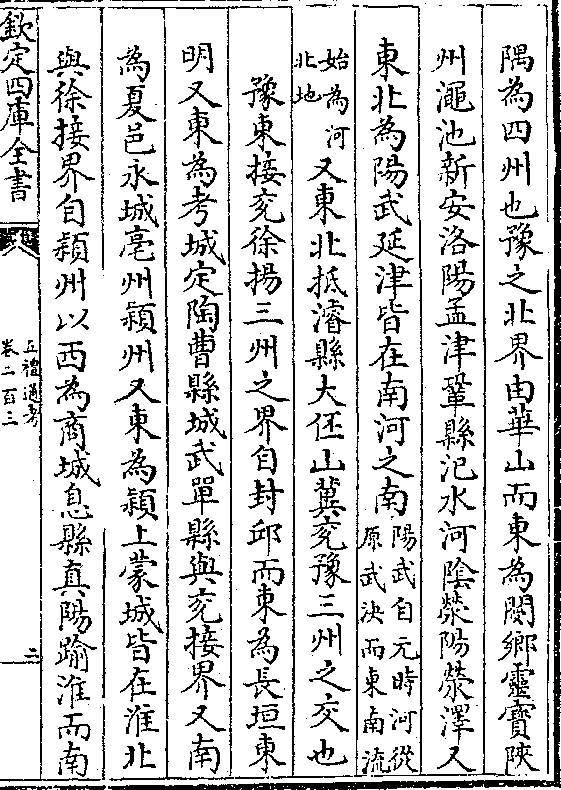 隅為四州也豫之北界由華山而東為閿鄉靈寶陜
州澠池新安洛陽孟津鞏縣汜水河陰滎陽滎澤又
東北為陽武延津皆在南河之南陽武自元時河從
原武決而東南流
始為河
北地又東北抵濬縣大伾山冀兗豫三州之交也
豫東接兗徐揚三州之界自封邱而東為長垣東
明又東為考城定陶曹縣城武單縣與兗接界又南
為夏邑永城亳州潁州又東為潁上蒙城皆在淮北
與徐接界自潁州以西為商城息縣真陽踰淮而南
欽定四庫全書
五禮通考
卷二百三
二